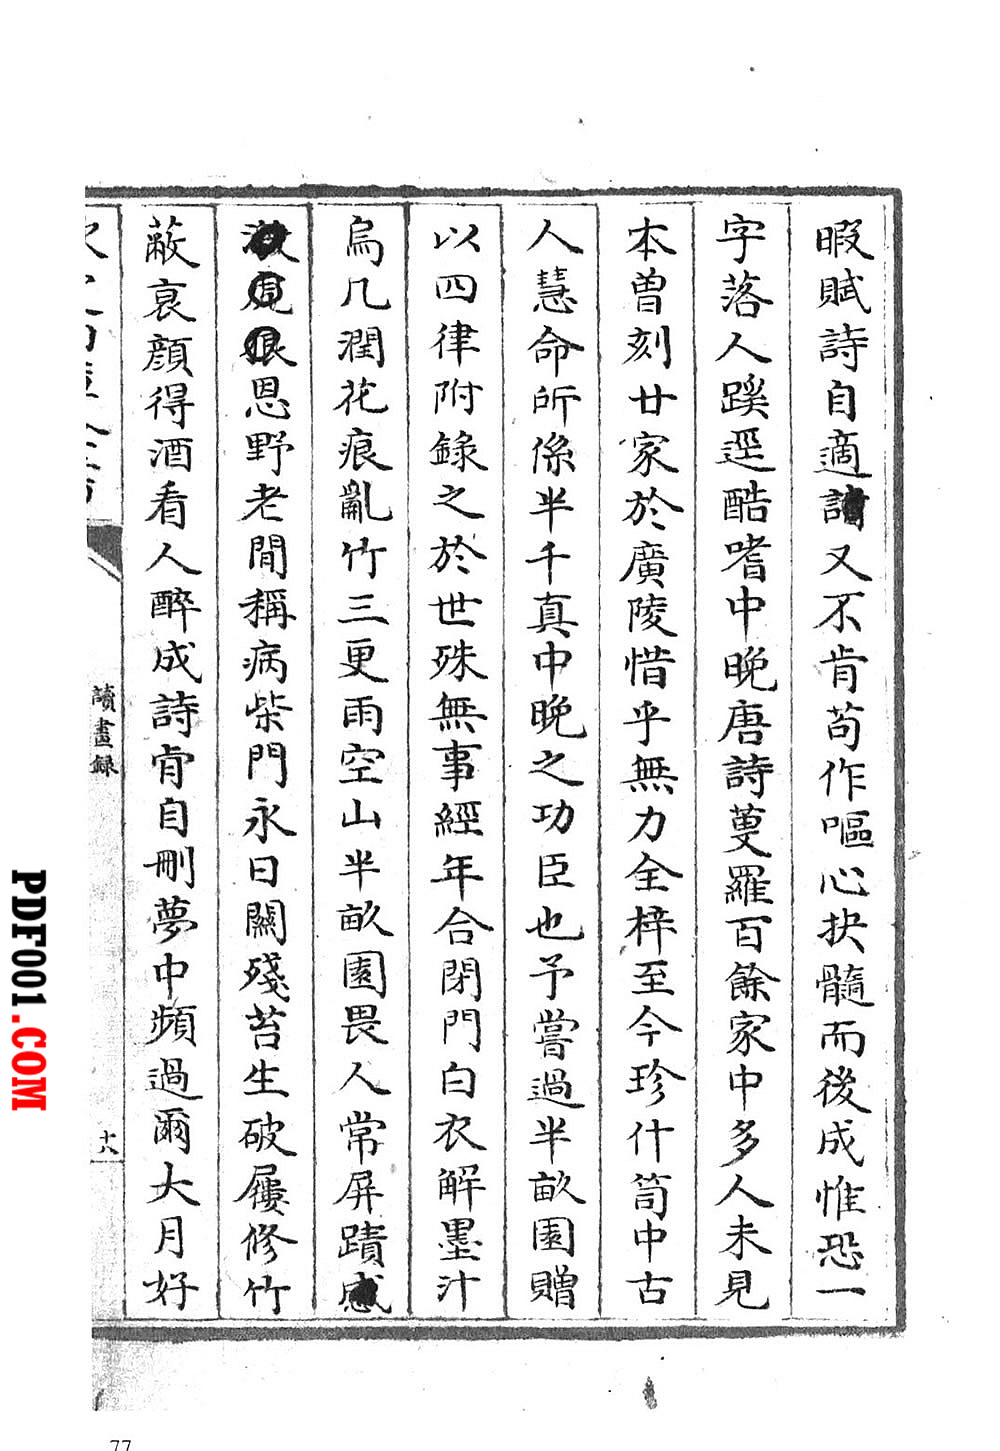 暇賦詩自適又不肯苟作嘔心抉髓而後成惟恐一
字落人蹊逕酷嗜中晚唐詩蒐羅百餘家中多人未見
本曾刻廿家於廣陵惜乎無力全梓至今珍什笥中古
人慧命所係半千真中晚之功臣也予嘗過半畝園贈
以四律附錄之於世殊無事經年合閉門白衣解墨汁
烏几潤花痕亂竹三更雨空山半畝園畏人常屏蹟感
恩野老閒稱病柴門永日關殘苔生破屨修竹
蔽衰顏得酒看人醉成詩肯自刪夢中頻過爾大月好
讀畫録
十六
PDF001.COM
77